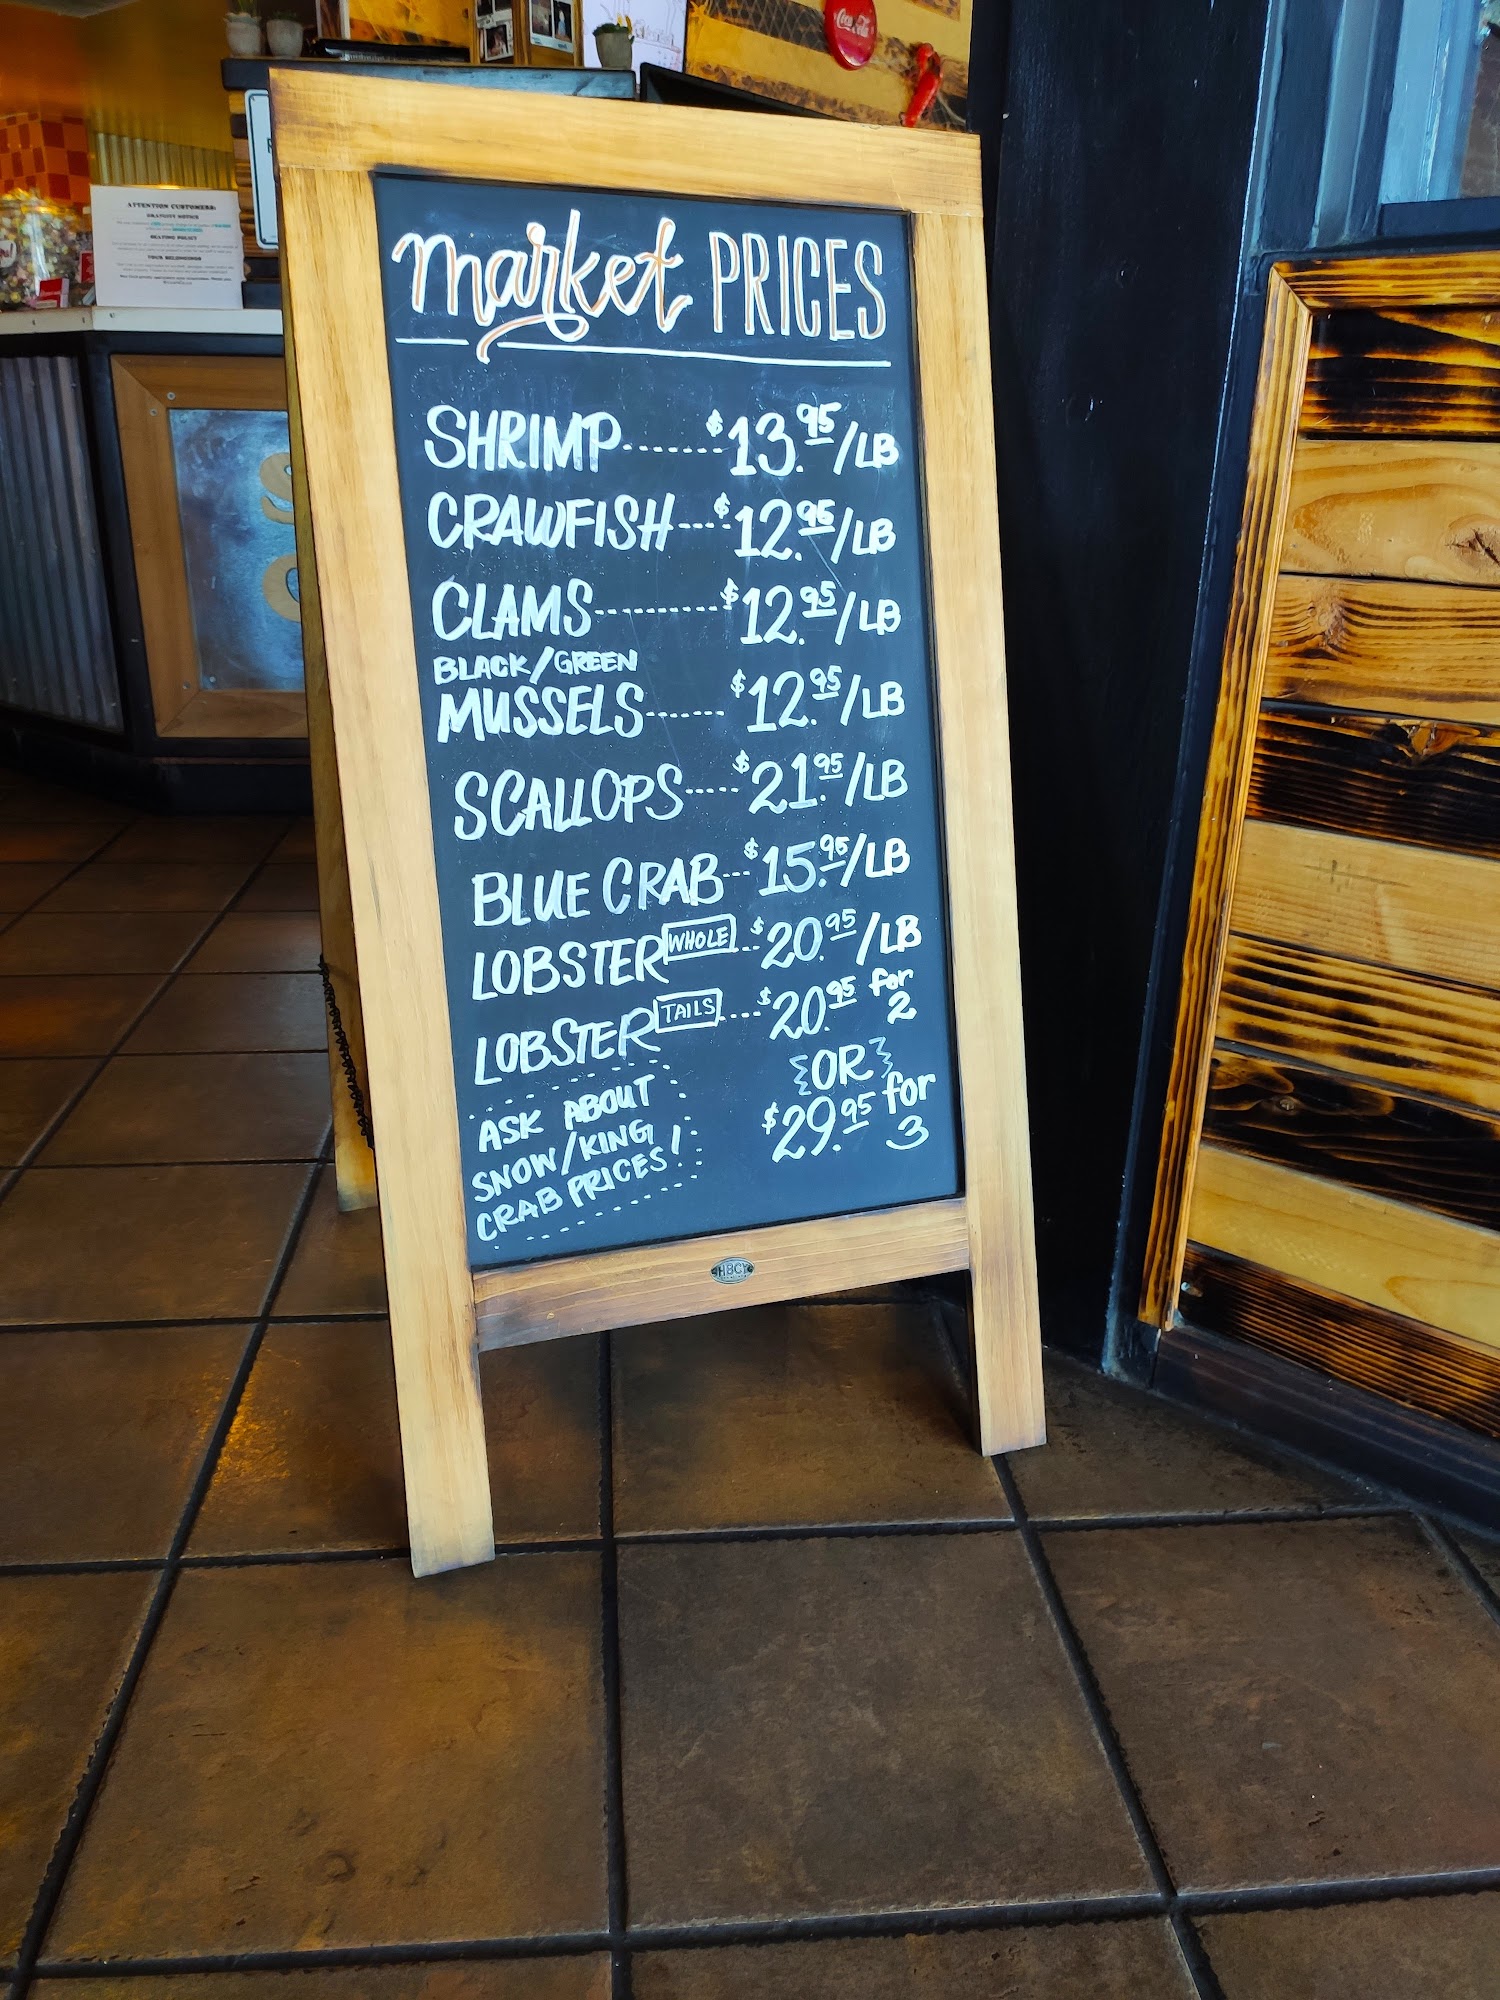 Coca-Cola
ATTENTION CUSTOMERS:
GRATUITY NOTICE
SEATING POLICY
YOUR BELONGINGS
market PRICES
SHRIMP ------ $13.95/LB
CRAWFISH --- $12.95/LB
CLAMS --------- $12.95/LB
BLACK/GREEN
MUSSELS ------ $12.95/LB
SCALLOPS ----- $21.95/LB
BLUE CRAB --- $15.95/LB
LOBSTER WHOLE -- $20.95/LB
LOBSTER TAILS ---- $20.95 for 2
{OR}
$29.95 for 3
ASK ABOUT
SNOW/KING
CRAB PRICES!
HBCY